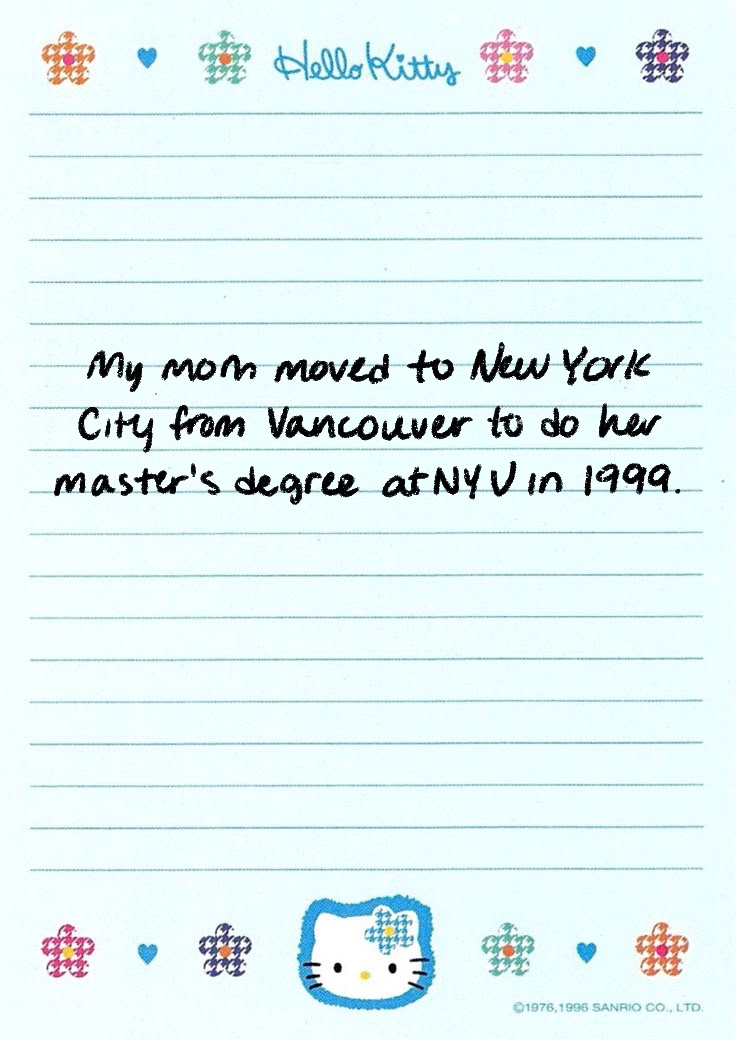 Hello Kitty
My mom moved to New York
City from Vancouver to do her
master's degree at NYU in 1999.
©1976,1996 SANRIO CO., LTD.